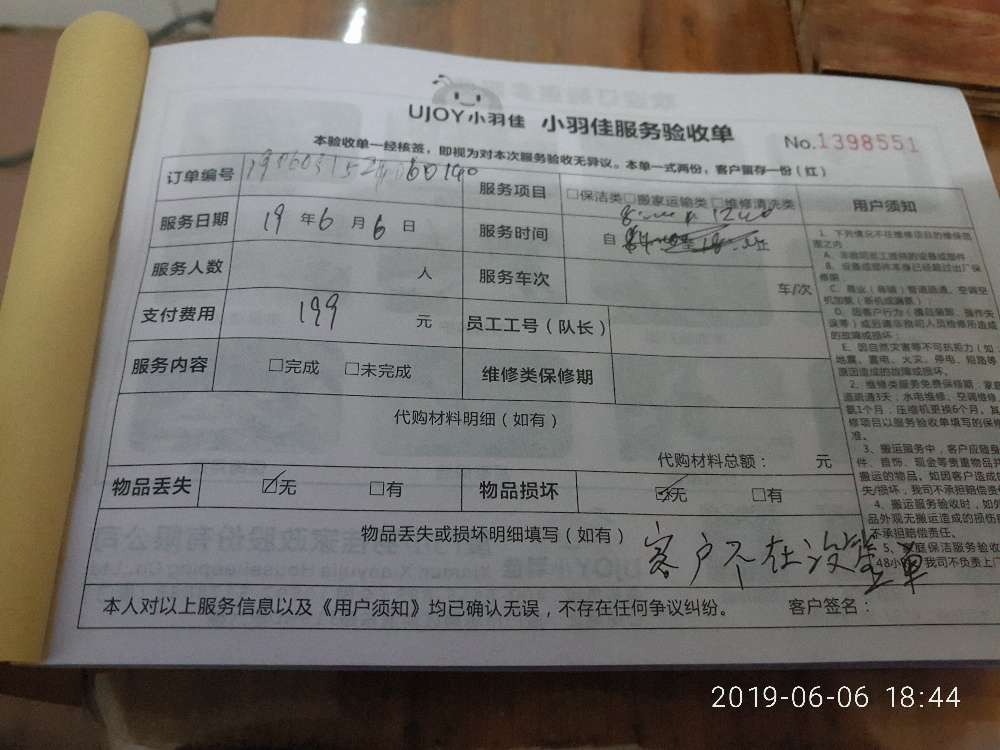 UJOY小羽佳 小羽佳服务验收单
No.1398551
本验收单一经核签，即视为对本次服务验收无异议。本单一式两份，客户留存一份（红）
订单编号
服务项目 □保洁类□搬家运输类□维修清洗类
用户须知
服务日期 19 年 6 月 6 日
服务时间 自
服务人数 人
服务车次 车/次
支付费用 199 元
员工工号（队长）
服务内容 □完成 □未完成
维修类保修期
代购材料明细（如有）
代购材料总额： 元
物品丢失 ☑无 □有
物品损坏 ☑无 □有
物品丢失或损坏明细填写（如有）
客户不在没签单
本人对以上服务信息以及《用户须知》均已确认无误，不存在任何争议纠纷。 客户签名：
1、下列情况不在维修项目的维保范
围之内
A、非我司员工提供的设备或部件
B、设备或部件本身已经超过出厂保
修期
E、因自然灾害等不可抗力（如
地震、雷电、火灾、停电、短路等
原因造成的故障或损坏。
2、维修类服务免费保修期，家庭
道疏通3天；水电维修、空调维修
氨1个月；压缩机更换6个月。其
修项目以服务验收单填写的保修
准。
3、搬运服务中，客户应随身
件、首饰、现金等贵重物品并
搬运的物品。如因客户造成的
失/损坏，我司不承担赔偿责任
4、搬运服务验收时，如外
品外观无搬运造成的损伤
不承担赔偿责任。
5、家庭保洁服务验收
48小 我司不负责上门
2019-06-06 18:44